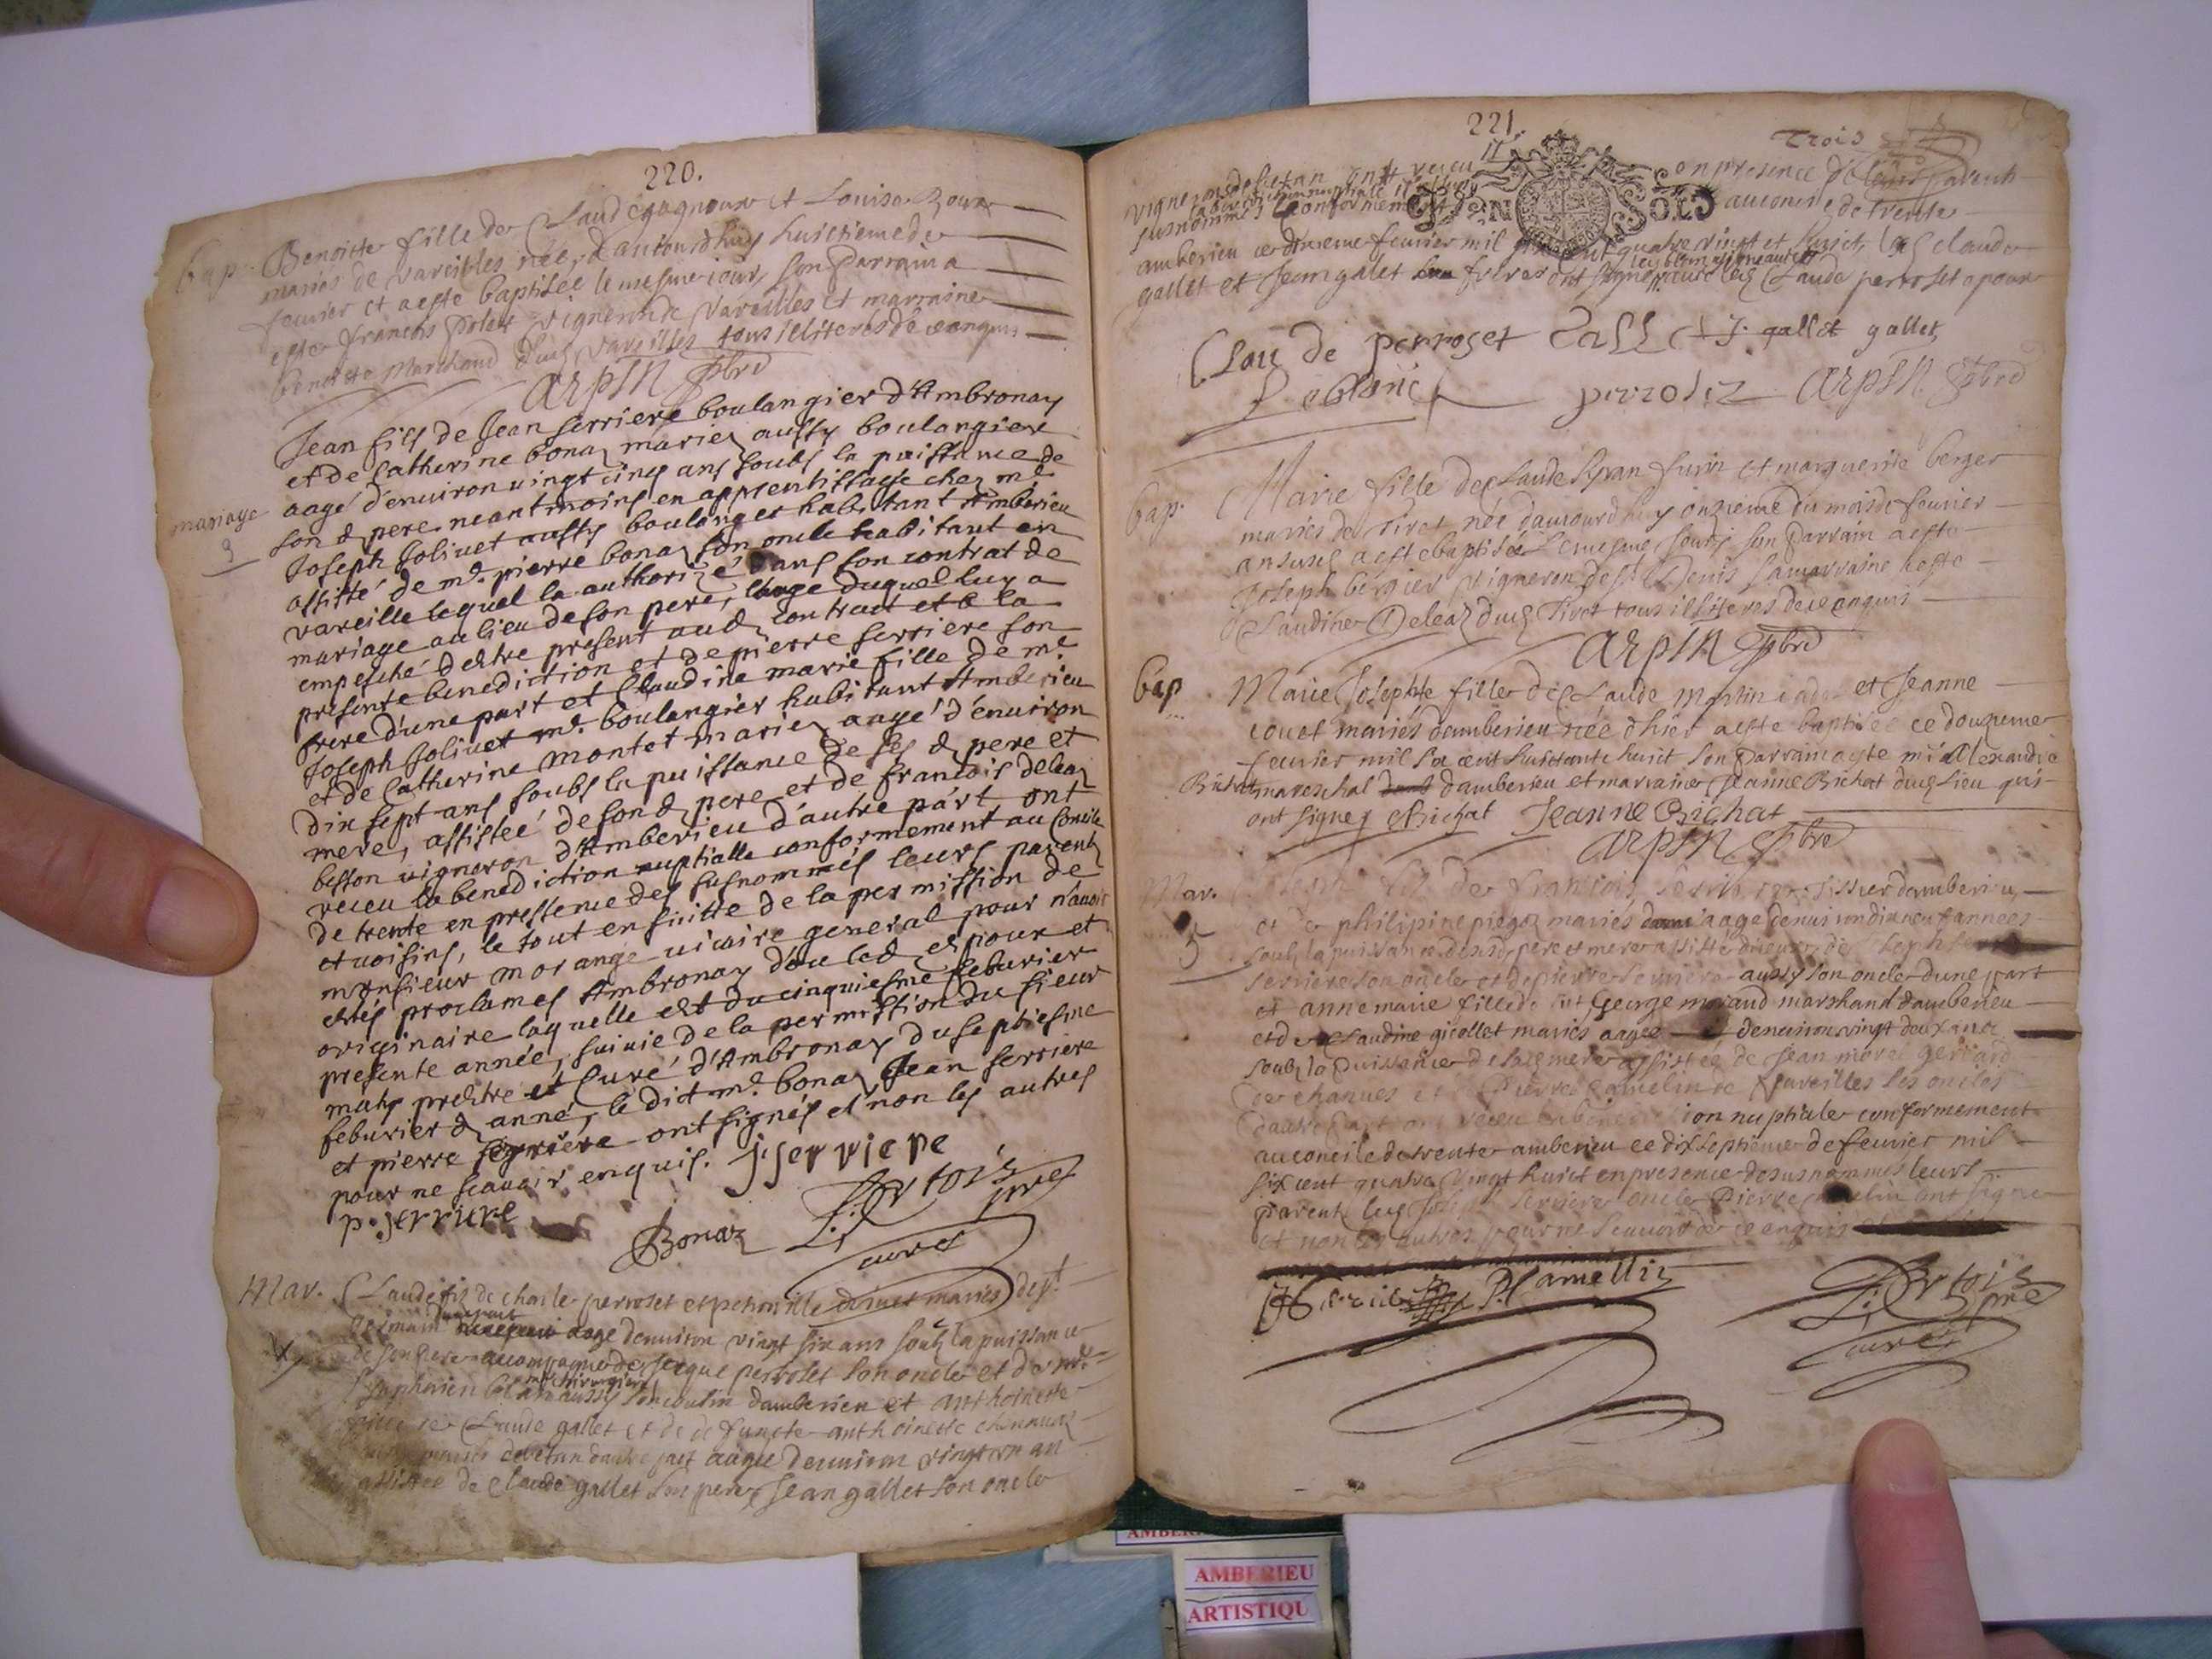 220.
Bap. Benoitte fille de Claude gagneur et Louise Roux
mariés de vareilles née d'auiourdhuy huictieme de
feurier et aesté baptisée le mesme iour son parrain a
esté françois vigneron de vareilles et marraine
benoitte Marchand dud. vareilles tous illiterés de ce enquis
Arpin pbre
mariage
3
Jean fils de Jean serriere boulangier d'Ambronay
et de Catherine bonaz mariez aussy boulangier
aagé d'enuiron uingt cinq ans soubs la puissance de
son d pere neantmoins en apprentissage chez me
Joseph Joliuet aussy boulanger habitant Amberieu
assisté de me pierre bonaz son oncle habitant en
vareille lequel la authorizé dans son contrat de
mariage au lieu de son pere, l'aage duquel luy a
empesché d'estre present aud contract et a la
presente benediction et de pierre serriere son
frere d'une part et Claudine marie fille de me
Joseph Joliuet me boulangier habitant Amberieu
et de Catherine montet mariez aagé d'enuiron
dix sept ans soubs la puissance de ses d pere et
mere, assistée de son d pere et de francois deleaz
besson uigneron d'Amberieu d'autre part ont
receu la benediction nuptialle conformement au Concile
de trente en pressence des susnommés leurs parents
et uoisins, le tout en suitte de la permission de
monsieur morange uicaire general pour n'auoir
estés proclames Ambronay d'ou led espoux et
originaire laquelle est du cinquiesme feburier
presente année, suiuie de la permission du sieur
maty prestre et Curé d'Ambronay du septiesme
feburier d anné, le dict me bonaz Jean serriere
et pierre serriere ont signés et non les autres
pour ne scauoir enquis. j serriere
p. serriere
Bonaz
Dortois pre
curé
Mar. Claude fis de charle perroset et petronille druet mariés de st
germain dune part aage denuiron vingt six ans soubz la puissance
de son pere accompagné de jacque perroset son oncle et de me
Symphorien leblanc me chirurgien aussy son cousin damberieu et anthoinette
fille de Claude gallet et de defuncte anthoinette
mariés de betan dautre part aagée denuiron vingt un an
assistée de Claude gallet son pere Jean gallet son oncle
221.
Trois
vignerons de betan ont receu
la benediction nuptiale
en presence de leurs parents
susnommés conformement au concile de trente
DEN SOLS
amberieu ce dixieme feurier mil six cent quatre vingt et huict, les claude
gallet et Jean gallet freres ont signé auec led Claude perroset epoux
Claude perroset Gallet J. gallet gallet
Leblanc perrosez Arpin pbre
bap. Marie fille de Claude et marguerite berger
mariés de tiret née d'auiourdhuy onzieme du mois de feurier
an susd aesté baptisée le mesme jour son parrain aesté
Joseph bergier vigneron de st Denis sa marraine aesté
Claudine Deleaz dud Tiret tous illiteres de ce enquis
Arpin pbre
bap. Marie Josephte fille de Claude Martin et Jeanne
couet mariés damberieu née dhier aesté baptisée ce douzieme
feurier mil six cent huictante huict son parrain aeste me Alexandre
Bichat mareschal damberieu et marraine Jeanne Bichat dud lieu qui
ont signez Bichat Jeanne Bichat
Arpin pbre
Mar.
5
Joseph fils de francois serriere tissier damberieu
et de philipine piegaz mariés aage denuiron dixneuf années
soubz la puissance de sesd pere et mere assisté de Joseph
serriere son oncle et de pierre serriere aussy son oncle dune part
et anne marie fille de fut George morand marchand damberieu
et de Claudine gicollet mariés aagée denuiron vingt deux ans
soubz la puissance de sad mere assistée de Jean morel
de chaues et de Pierre hamelin de vareilles ses oncles
dautre part ont receu la benediction nuptiale conformement
au concile de trente amberieu ce dix septieme de feurier mil
six cent quatre vingt huict en presence de susnommes leurs
parents led Joseph serriere oncle Pierre hamelin ont signe
et non les autres pour ne scauoir de ce enquis
P. hamellin
Dortois pre
curé
AMBERIEU
ARTISTIQU